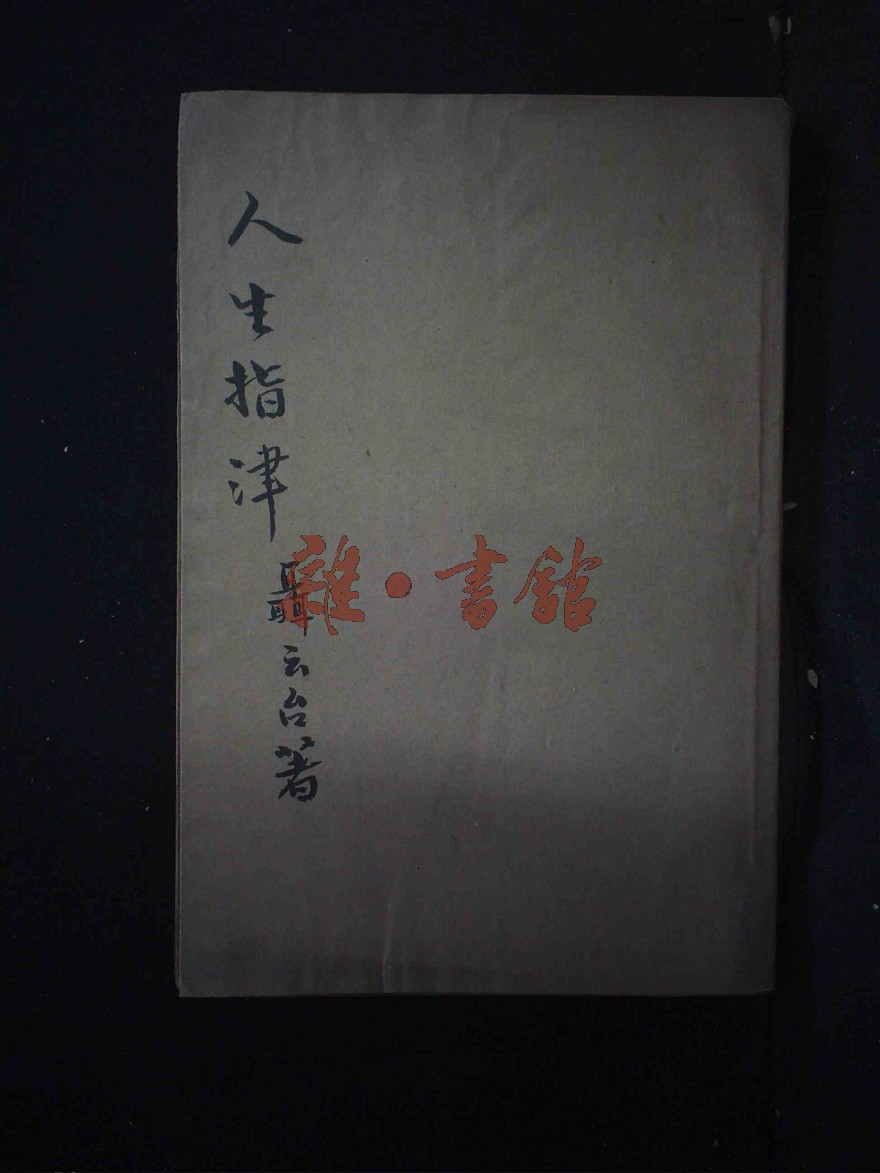 人生指津
聶云台著
雜·書館